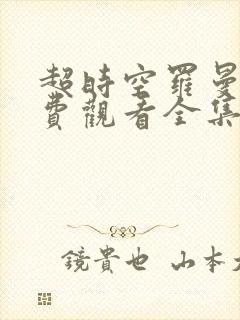 超時空羅曼
費觀看全集
鏡貴也 山本